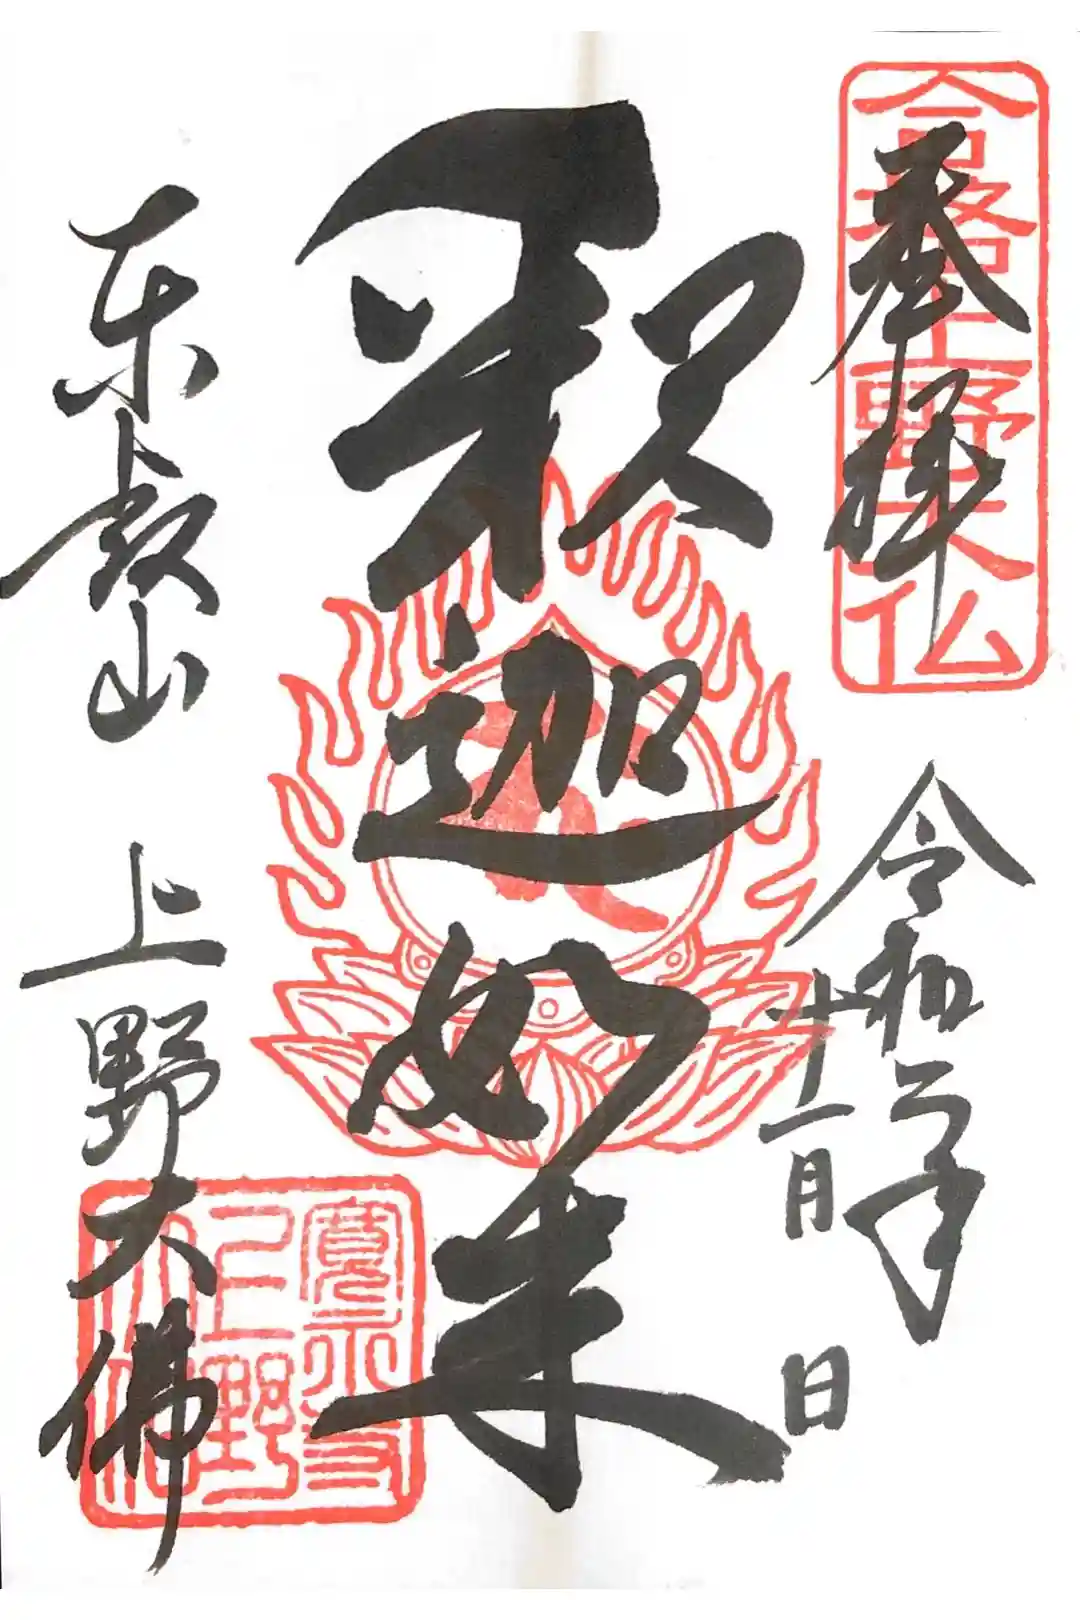 合格上野大仏
奉拝
令和二年
十一月
日
釈迦如来
東叡山
上野大佛
寛永寺上野大仏